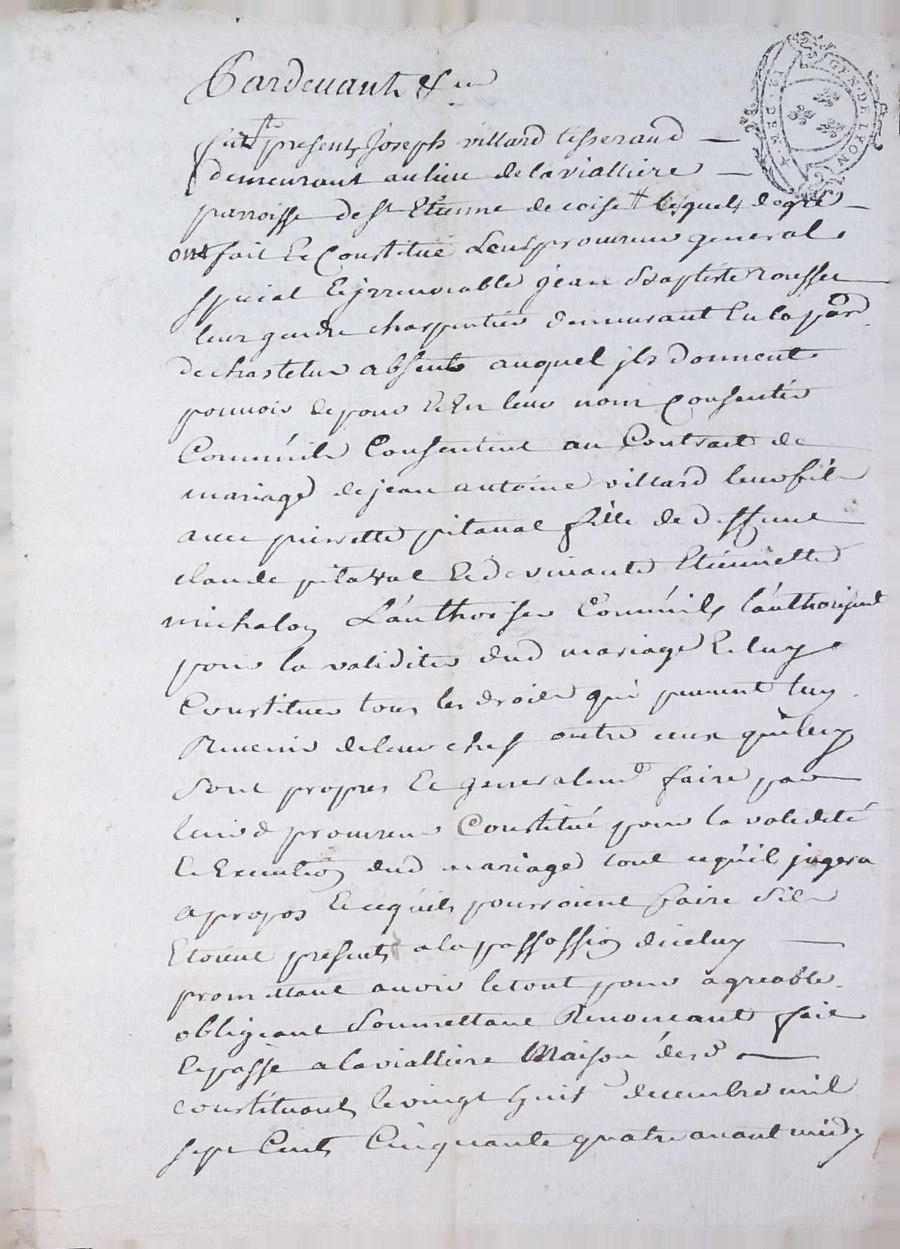 GEN. DE LYON
12. DEN. 4
Pardevant &
furent presents Joseph villard tisserand
demeurant au lieu de laviallière
parroisse de st Etienne de coise + lesquels de gré
ont fait et constitué leur procureur general
special et jrrevocable jean Baptiste rousset
leur gendre charpentier demeurant en la par
de chastelus absent auquel jls donnent
pouvoir de pour et en leur nom consentir
comm'ils consentent au contrat de
mariage de jean antoine villard leur fils
avec pierrette pitaval fille de deffunt
claude pitaval et de vivante Etiennette
michalon l'authoriser comm'ils l'authorisent
pour la validité dud mariage et luy
constituer tous les droits qui peuvent luy
Revenir de leur chef outre ceux qui luy
sont propres et generalemt faire par
leurd procureur constitué pour la validité
et Execution dud mariage tout ce qu'il jugera
apropos et ce qu'ils pourroient faire s'ils
Etoient presents a la passassion diceluy
promettant avoir le tout pour agreable
obligeant soumettant Renonceant fait
et passé a laviallière Maison des d
constituants le vingt huit decembre mil
sept cents cinquante quatre avant midy